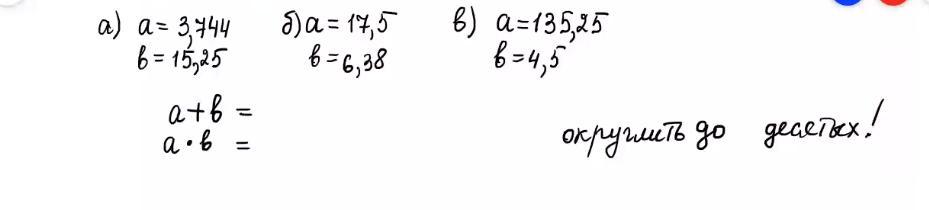 а) a = 3,744 б) a = 17,5 в) a = 135,25
b = 15,25 b = 6,38 b = 4,5
a + b =
a · b = округлить до десятых!